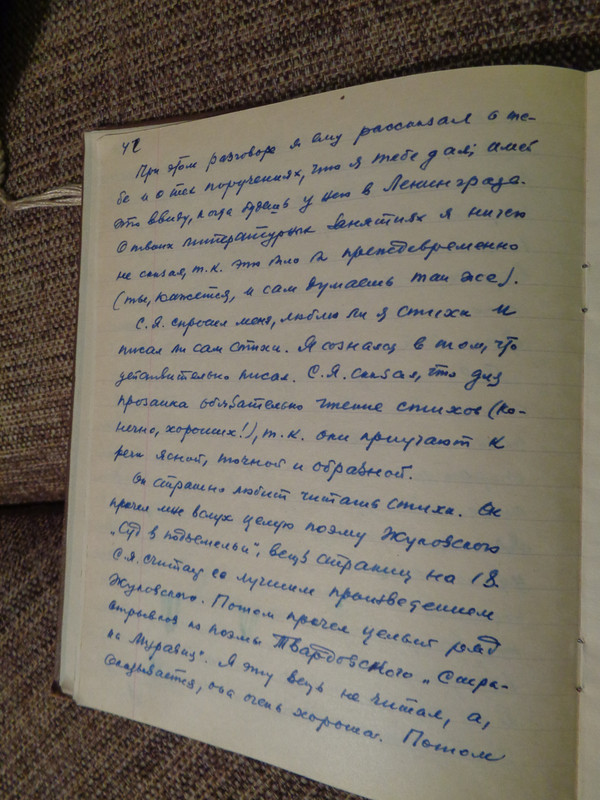 42
При этом разговоре я ему рассказал о те-
бе и о тех поручениях, что я тебе дал; имей
это ввиду, когда будешь у него в Ленинграде.
О твоих литературных занятиях я ничего
не сказал, т.к. это было б преждевременно
(ты, кажется, и сам думаешь так же).
С.Я. спросил меня, люблю ли я стихи и
писал ли сам стихи. Я сознался в том, что
действительно писал. С.Я. сказал, что для
прозаика обязательно чтение стихов (ко-
нечно, хороших!), т.к. они приучают к
речи ясной, точной и образной.
Он страшно любит читать стихи. Он
прочел мне вслух целую поэму Жуковского
„Суд в подземельи", вещь страниц на 18.
С.Я. считает ее лучшим произведением
Жуковского. Потом прочел целый ряд
отрывков из поэмы Твардовского „Стра-
на Муравия". Я эту вещь не читал, а,
оказывается, она очень хороша. Потом